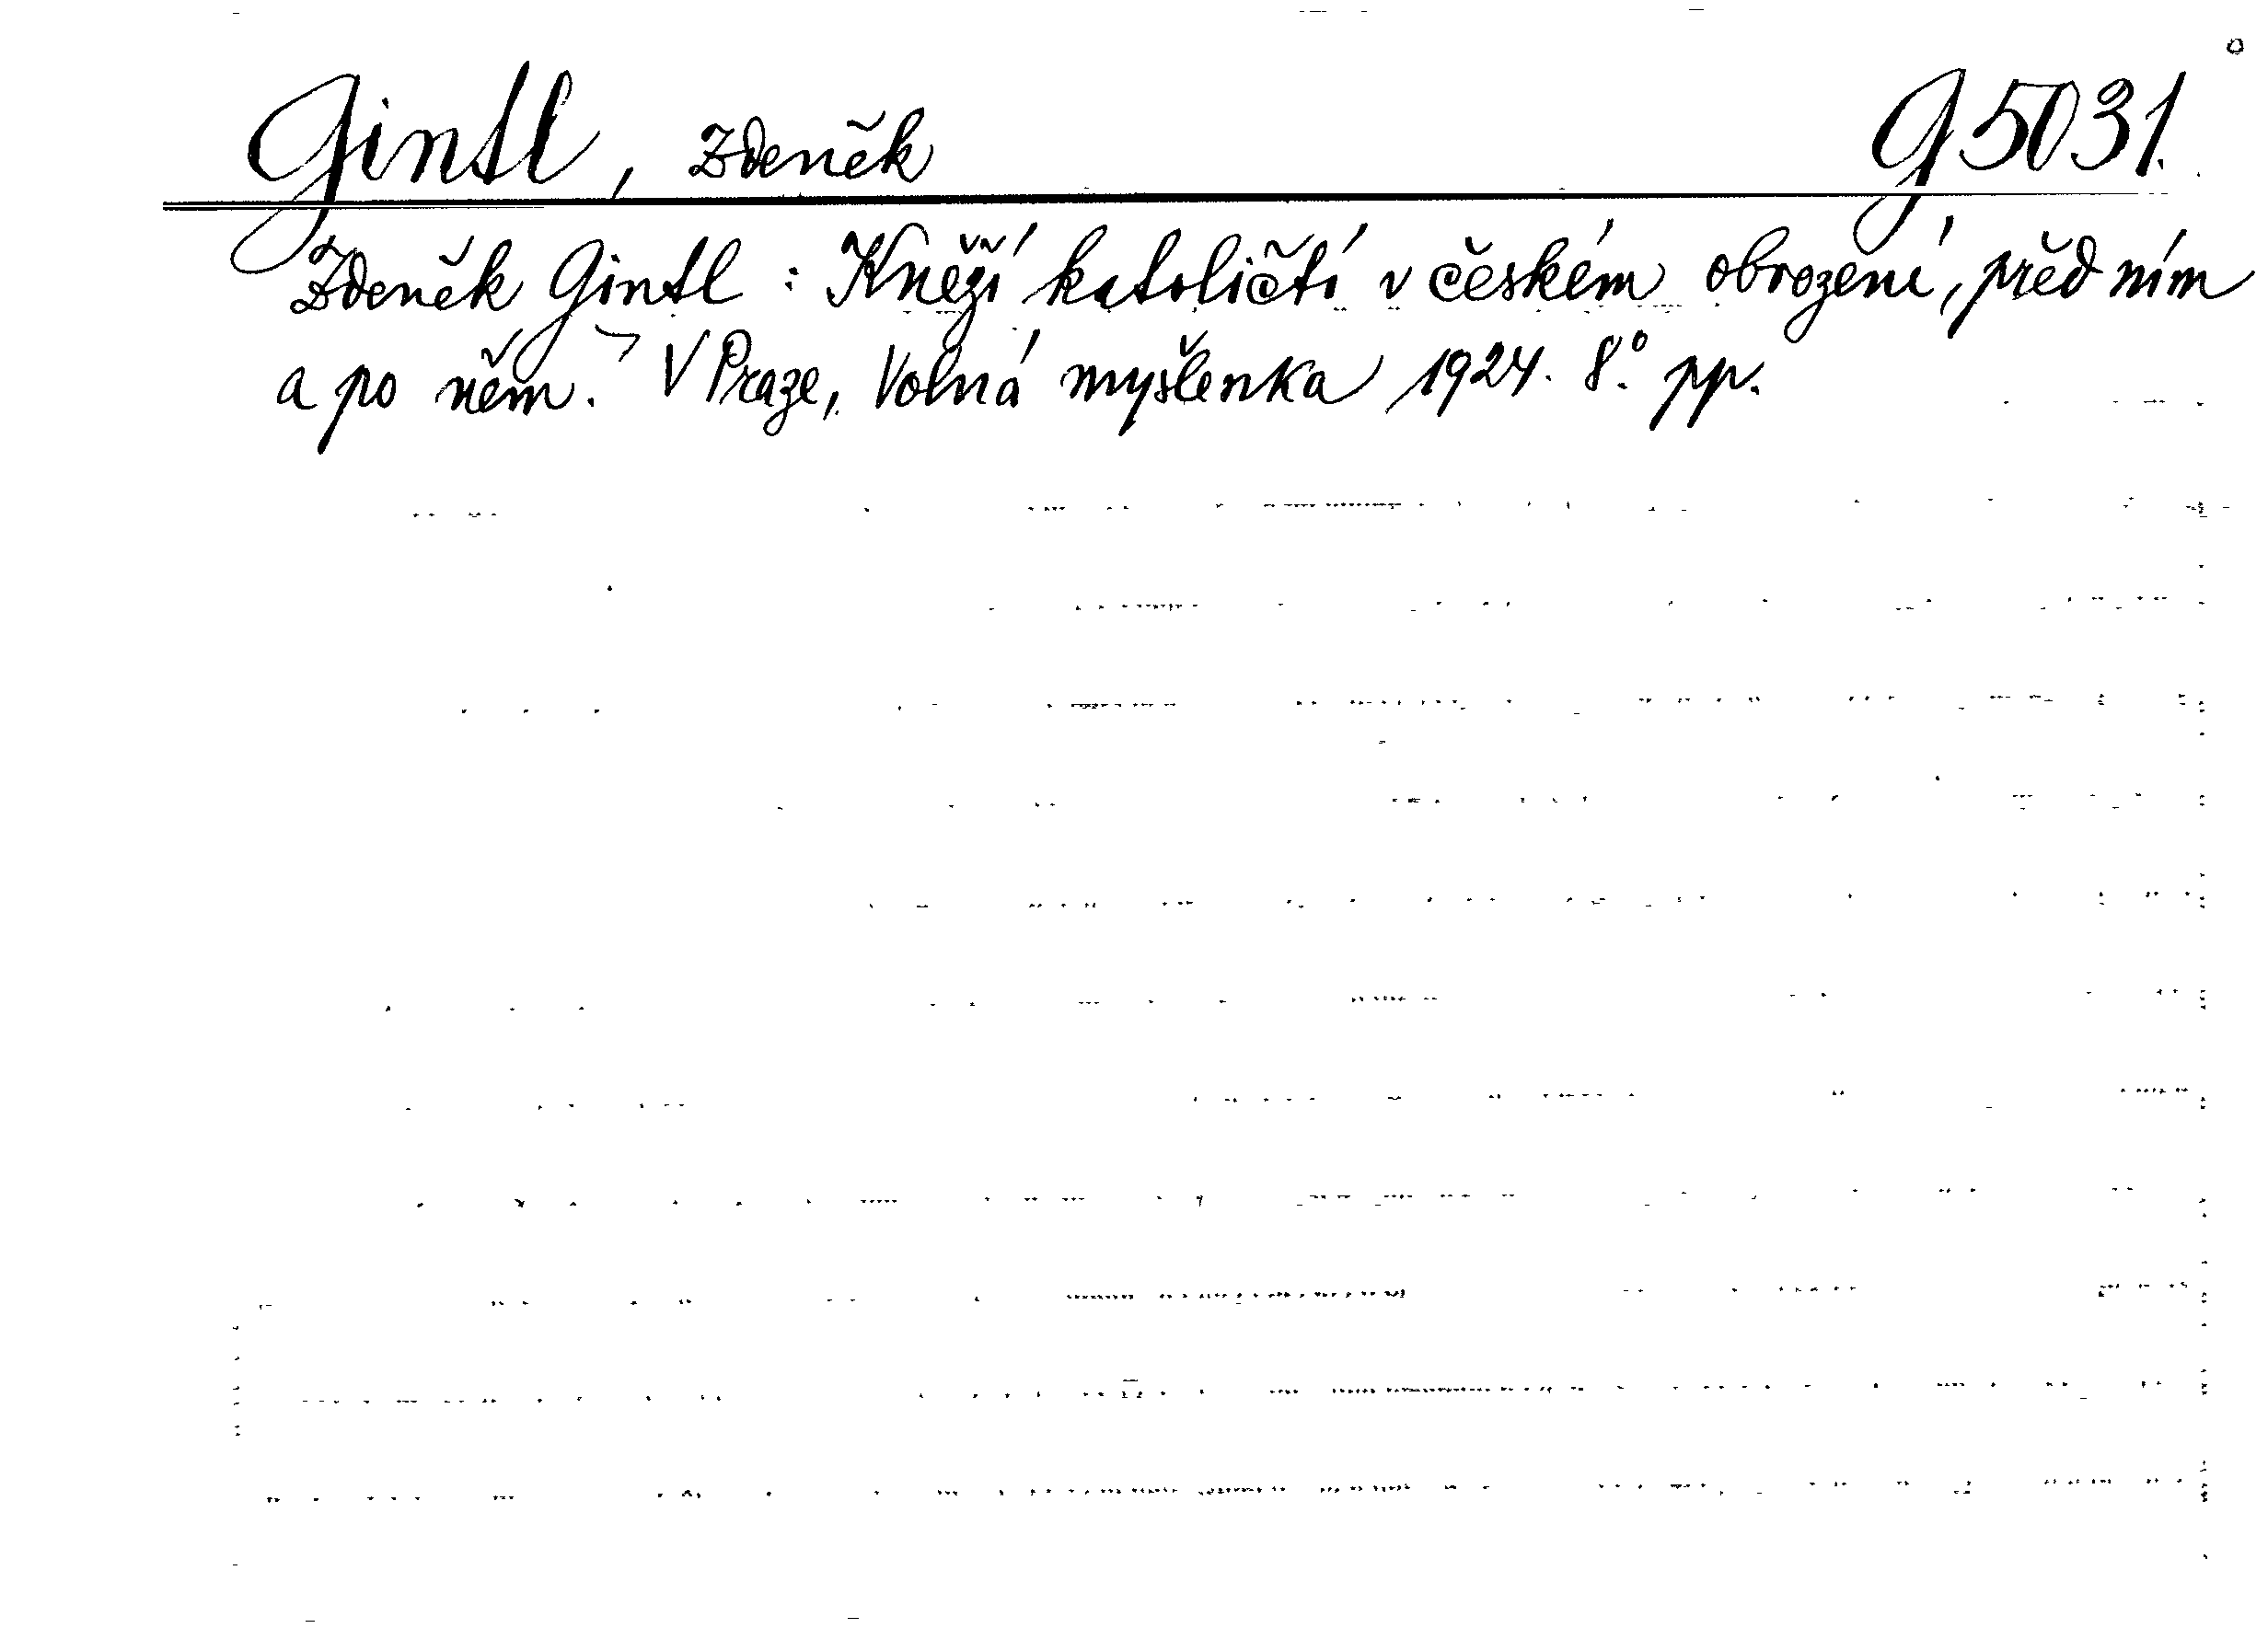 Gintl, Zdeněk G 5031.
Zdeněk Gintl : Kněží katoličtí v českém obrození, před ním
a po něm. V Praze, Volná myšlenka 1924. 8°. pp.